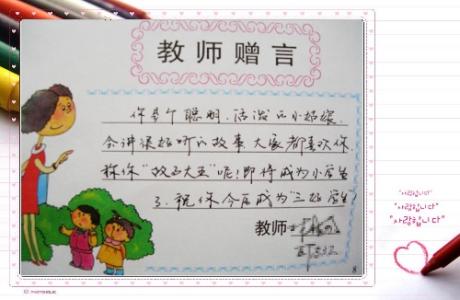 教师赠言
你是个聪明、活泼的小姑娘,
会讲很好听的故事,大家都喜欢你,
称你“故事大王”呢!即将成为小学生
了,祝你今后成为“三好学生”
教师:
사랑합니다
"사랑합니다"
"사랑합니다"